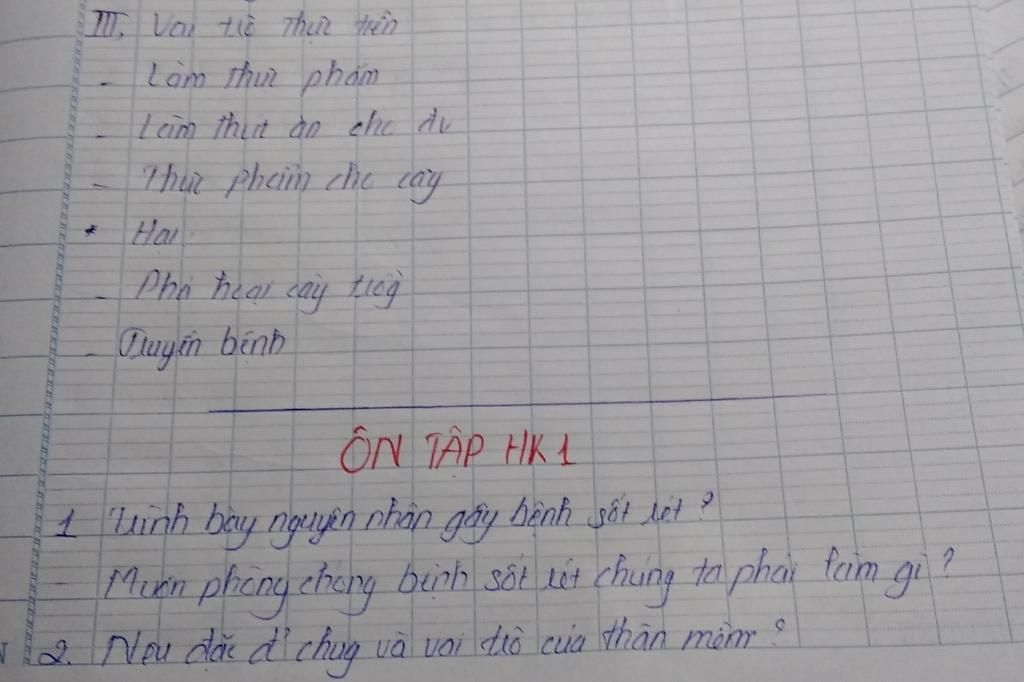 III, Vai trò thực tiễn
- Làm thực phẩm
- Làm thức ăn cho đv
- Thực phẩm cho cây
* Hại
- Phá hoại cây trồg
- Truyền bệnh
ÔN TẬP HK1
1 Trình bày nguyên nhân gây bệnh sốt rét ?
Muốn phòng chống bệnh sốt rét chúng ta phải làm gì ?
2. Nêu đặc đ' chug và vai trò của thân mềm ?